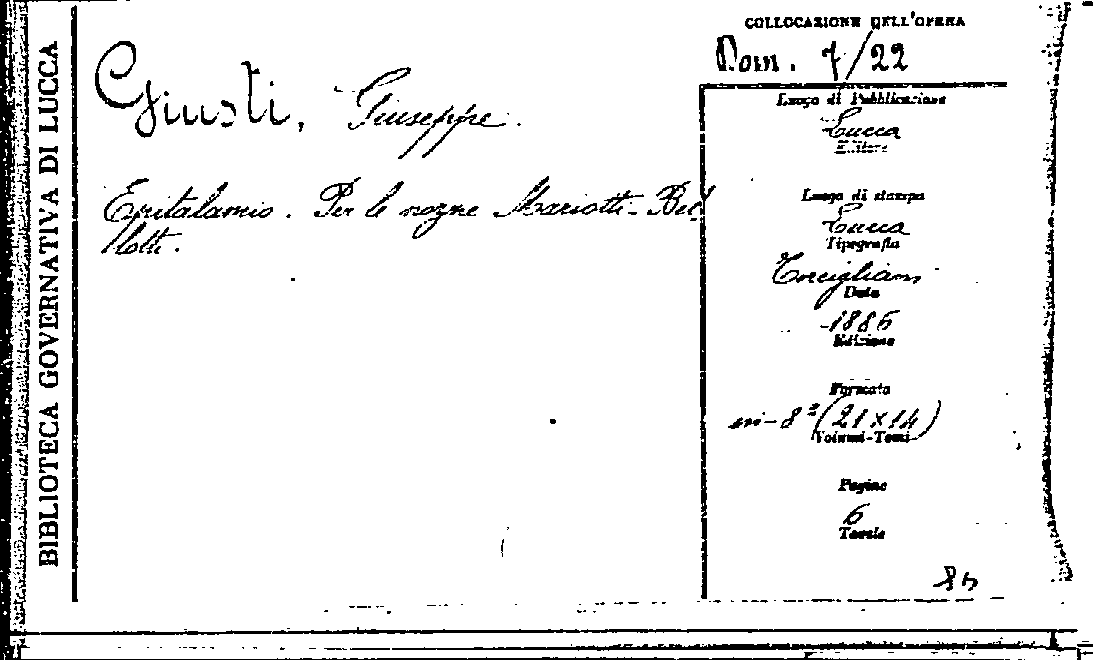 BIBLIOTECA GOVERNATIVA DI LUCCA
Giusti, Giuseppe.
Epitalamio. Per le nozze Mariotti-Bel-
lotti.
COLLOCAZIONE DELL'OPERA
Dom. 7/22
Luogo di Pubblicazione
Lucca
Editore
Luogo di stampa
Lucca
Tipografia
Torcigliani
Data
1886
Edizione
Formato
in-8º (21 x 14)
Volumi-Tomi
Pagine
6
Tavole